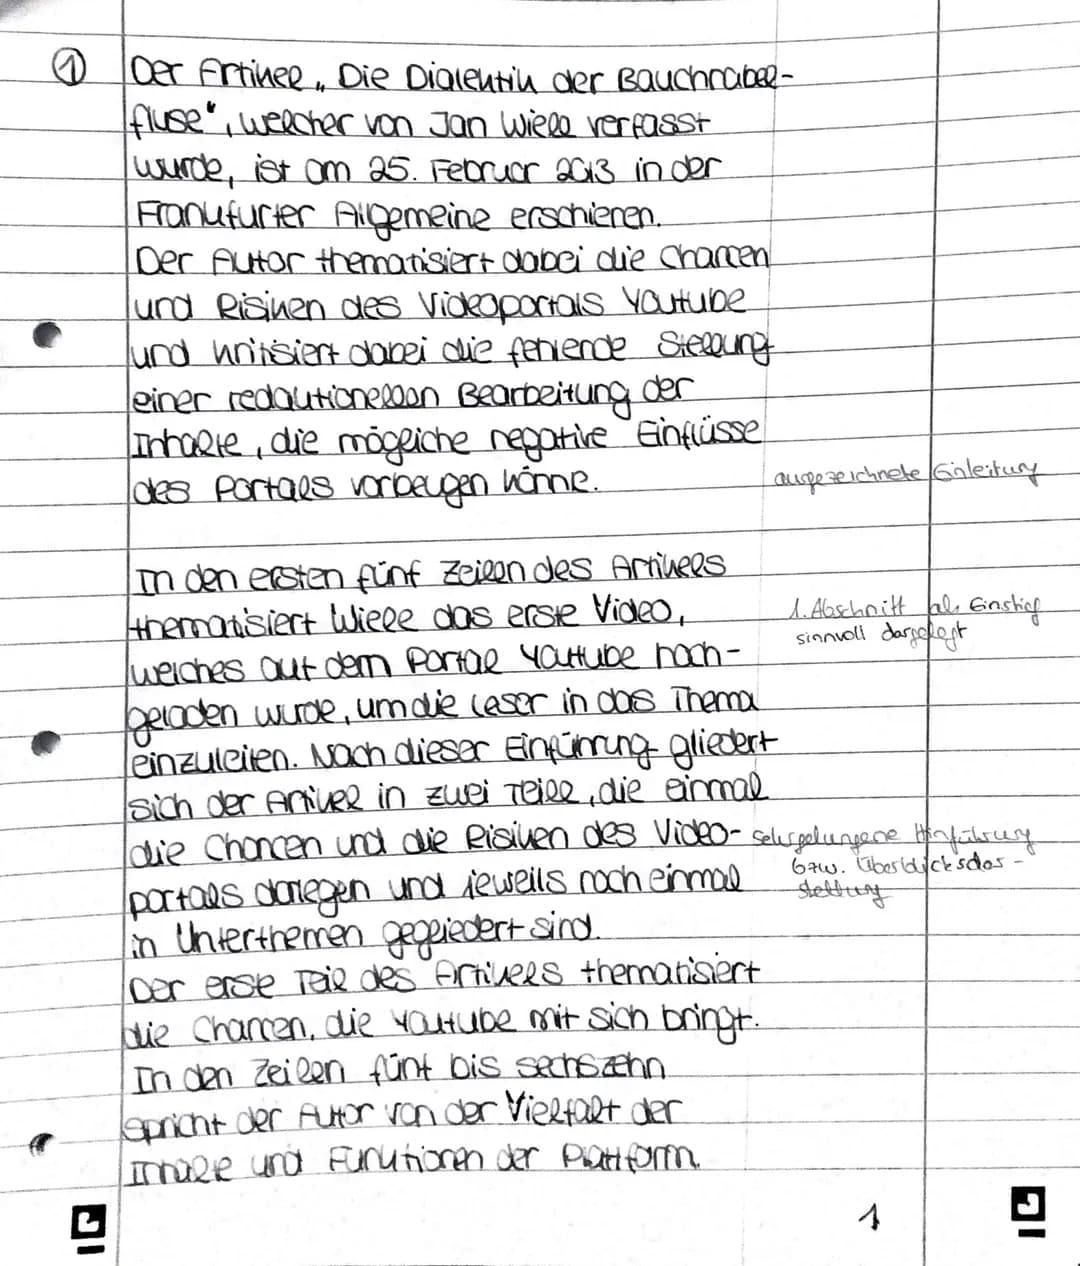 ① Der Artikel „Die Dialektik der Bauchnabel-
fluse", welcher von Jan Wiele verfasst
wurde, ist am 25. Februar 2013 in der
Frankfurter Allgemeine erschienen.
Der Autor thematisiert dabei die Chancen
und Risiken des Videoportals Youtube
und kritisiert dabei die fehlende Stellung
einer redaktionellen Bearbeitung der
Inhalte, die mögliche negative Einflüsse
des Portals vorbeugen könne.
ausgezeichnete Einleitung
In den ersten fünf Zeilen des Artikels
thematisiert Wiele das erste Video,
1. Abschnitt als Einstieg
sinnvoll dargelegt
welches auf dem Portal Youtube hoch-
geladen wurde, um die Leser in das Thema
einzuleiten. Nach dieser Einführung gliedert
sich der Artikel in zwei Teile, die einmal
die Chancen und die Risiken des Video-
sehr gelungene Hinführung
bzw. Überblicksdar-
stellung
portals darlegen und jeweils noch einmal
in Unterthemen gegliedert sind.
Der erste Teil des Artikels thematisiert
die Chancen, die Youtube mit sich bringt.
In den Zeilen fünf bis sechszehn
spricht der Autor von der Vielfalt der
Inhalte und Funktionen der Plattform.
1